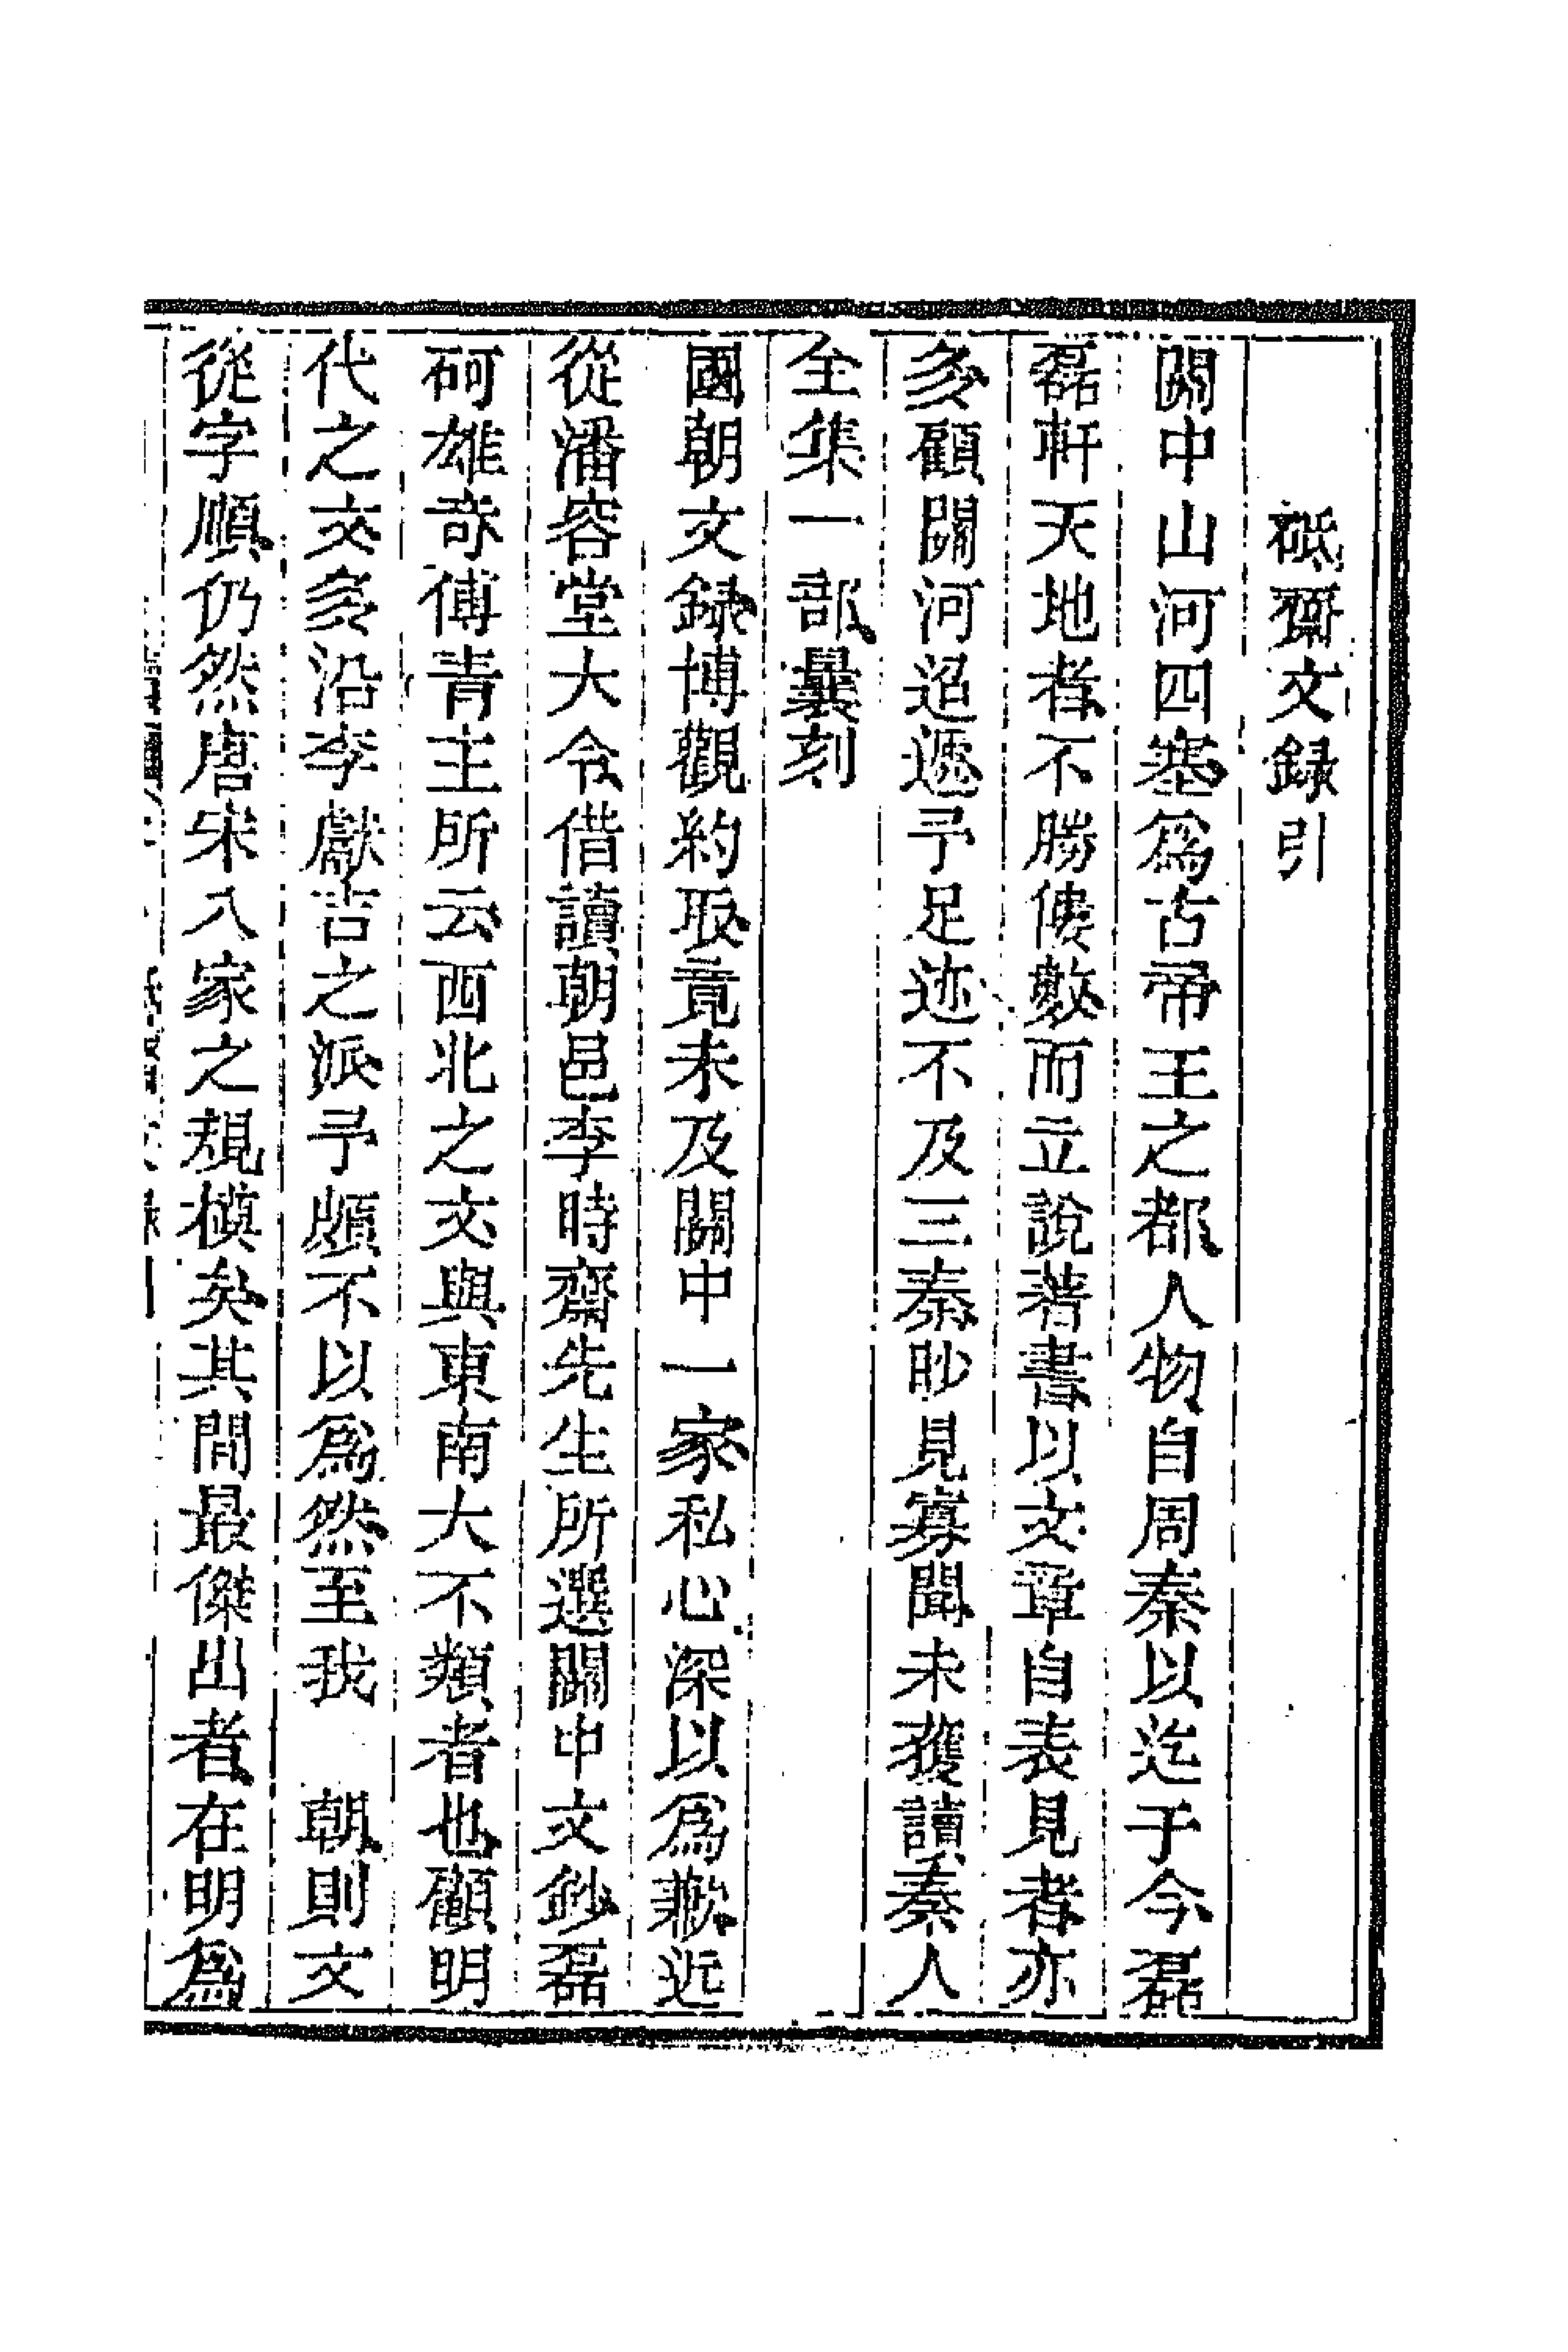 砥齋文録引
關中山河四塞爲古帝王之都人物自周秦以迄于今磊
磊軒天地者不勝僂數而立說著書以文章自表見者亦
多顧關河迢遞予足迹不及三秦眇見寡聞未獲讀秦人
全集一部曩刻
國朝文録博觀約取竟未及關中一家私心深以爲歉近
從潘容堂大令借讀朝邑李時齋先生所選關中文鈔磊
砢雄奇傅青主所云西北之文與東南大不類者也顧明
代之文多沿李獻吉之派予頗不以爲然至我 朝則文
從字順仍然唐宋八家之規橅矣其間最傑出者在明爲